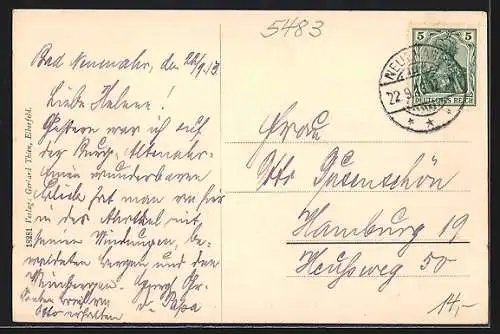 5483
Bad Neuenahr, den 22/9.13.
Liebe Helene!
Gestern war ich auf
der Burg Altenahr.
Einen wunderbaren
Blick hat man von hier
in das Ahrthal mit
seinen Windungen, be-
waldeten Bergen und den
Weinbergen.
Otto erhalten
Papa
18281 Verlag: Gerhard Thien, Elberfeld.
5 5
DEUTSCHES REICH
22.9.13
Frau
Otto Rosenschön
Hamburg 19
Heussweg 50
14,-